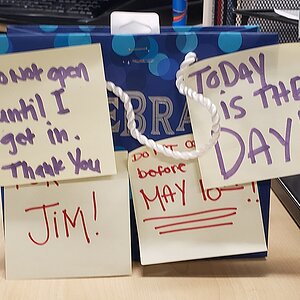 Do not open
until I
get in.
Thank You
TODAY
iS THE
DAY!
EBRA
JIM!
before
MAY 10